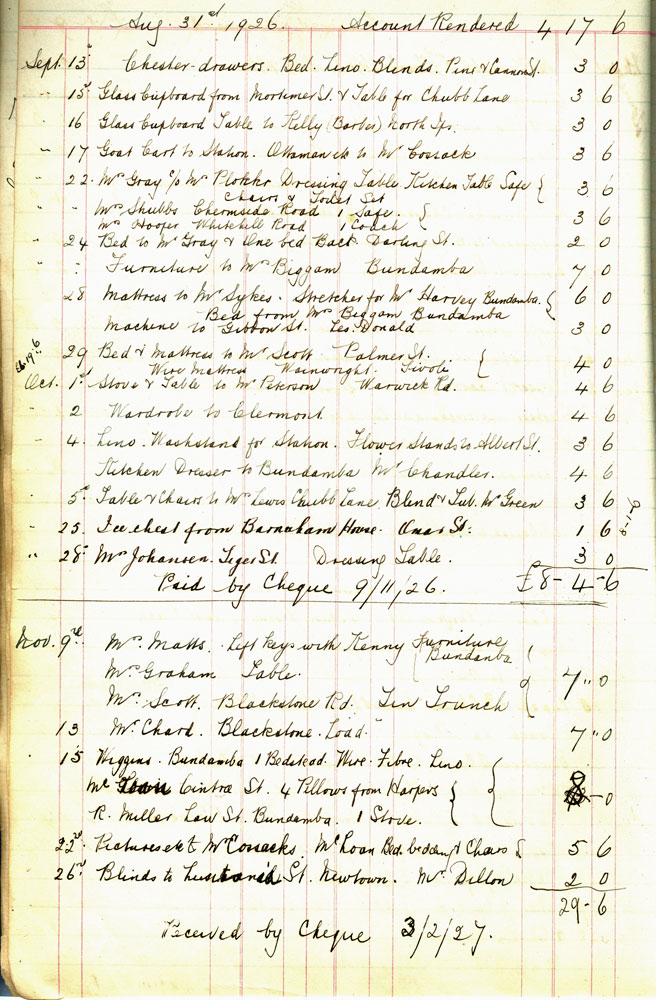 Aug. 31st 1926. Account Rendered 4 17 6
Sept. 13 Chester-drawers. Bed. Lino. Blinds. Pine & Cannon St. 3 0
" 15 Glass Cupboard from Mortimer St. & Table for Chubb Lane 3 6
" 16 Glass Cupboard Table to Kelly (Barber) North Ips. 3 0
" 17 Goat Cart to Station. Ottoman to Mr Cossack 3 6
" 22. Mrs Gray c/o Mr Dressing Table Kitchen Table Safe 3 6
Chairs & Toilet Set
" Mrs Shubbs Chermside Road 1 Safe. 3 6
Mrs Hooper Whitehill Road 1 Couch
" 24 Bed to Mr Gray & One bed Back Darling St. 2 0
" Furniture to Mrs Biggam Bundamba 7 0
" 28 Mattress to Mr Sykes. Stretcher for Mr Harvey Bundamba. 6 0
Bed from Mrs Biggam Bundamba
Machine to Gibbon St. Les. Donald 3 0
£6.19.6
29 Bed & Mattress to Mr Scott Palmer St. 4 0
Wire Mattress Wainwright. Tivoli
Oct. 1st Stove & Table to Mr Peterson Warwick Rd. 4 6
" 2 Wardrobe to Clermont 4 6
" 4. Lino. Washstand for Station. Flower Stands to Albert St. 3 6
Kitchen Dresser to Bundamba Mr Chandler. 4 6
" 5 Table & Chairs to Mrs Lewis Chubb Lane. Blind & Tub. Mr Green 3 6
" 25. Ice chest from Barnham House. Omar St. 1 6
" 28 Mrs Johansen. Tiger St. Dressing Table. 3 0
Paid by Cheque 9/11/26. £8-4-6
Nov. 9 Mrs Matts. Left keys with Kenny Furniture
Bundamba
Mrs Graham Table. 7"0
Mr Scott. Blackstone Rd. Tin Trunch
13 Mr Chard. Blackstone. Load 7"0
" 15 Wiggins. Bundamba 1 Bedstead. Wire. Fibre. Lino.
Mr Cintra St. 4 Pillows from Harpers 8-0
R. Miller Law St. Bundamba. 1 Stove.
" 22nd Pictures etc to Mr Cossacks. Mr Loan Bed. bedding & Chairs 5 6
" 26 Blinds to St. Newtown. Mr Dillon 2 0
29-6
Received by Cheque 3/2/27.